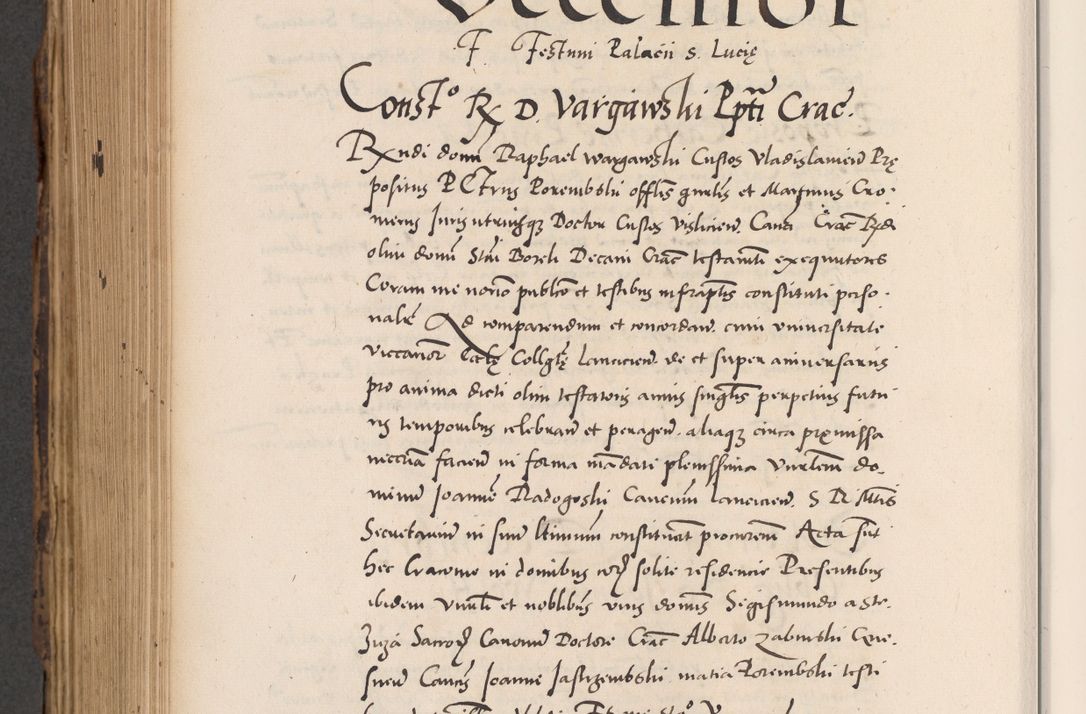 F. Festum Palacii S. Lucię
Const° Rx D. Vargawski Ppti Crac.
Rxndi domi Raphael wargawski Custos Vladislavien Prę
positus Petrus Porembski offlis gnrlis et Martinus Cro-
merus Juris utriusqz Doctor Custos Visliciens. Canci Crac Rxdi
olim domi Stani Boreli Decani Crac testamti exequutores
Coram me norio publco et testibus infraptis constituti perso-
nalr Ad comparendum et concordan. cum universitate
viccanor Eccle Collgtę Lancicien. de et super aniversariis
pro anima dicti olim testatoris annis singlis perpetuis futu
ris temporibus celebran et peragen. aliaqz circa premissa
necria facien in forma mandati plenissima Venrlem do-
minum Joannē Radogoski Canonum Lancicien. S R Mtis
Secretarium in suum ltimum constituunt procurem Acta sunt
hec Cracovie in domibus eorz solite residencie Presentibus
ibidem Venrli et noblibus viris domis Sigismundo a Ste-
zuza Sacrorz Canonum Doctore Crac Alberto zabinski Gne-
snen Cancis Joanne Jastrzembski matia Porembski testi